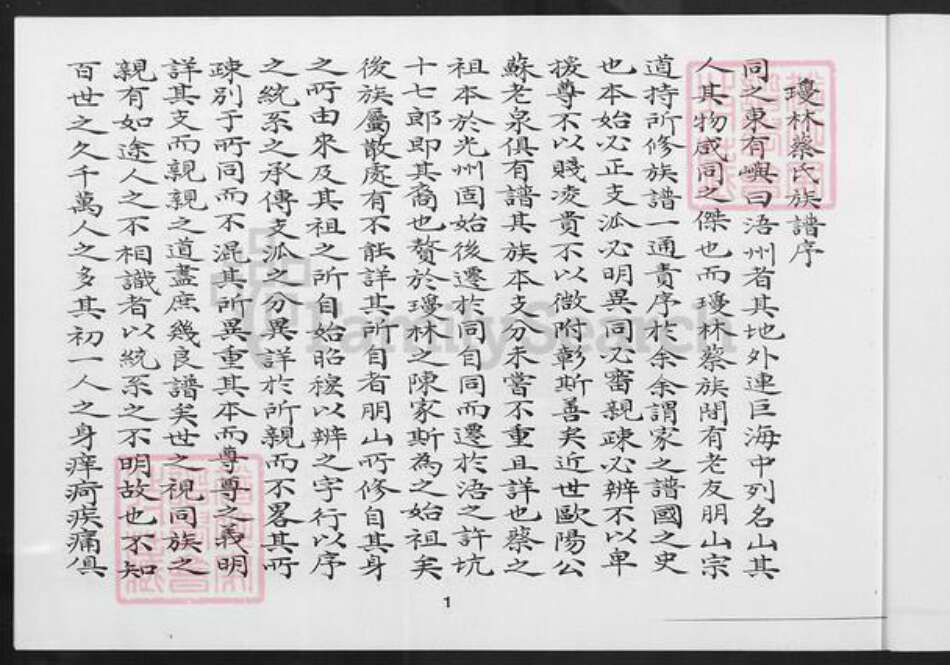 瓊林蔡氏族譜序
同之東有嶼曰浯州者其地外連巨海中列名山其
人其物咸同之傑也而瓊林蔡族閒有老友朋山宗
道持所修族譜一通責序於余余謂家之譜國之史
也本始必正支派必明異同必審親疎必辨不以卑
援尊不以賤凌貴不以微附彰斯善矣近世歐陽公
蘇老泉俱有譜其族本支分未嘗不重且詳也蔡之
祖本於光州固始後遷於同自同而遷於浯之許坑
十七郎即其裔也贅於瓊林之陳家斯為之始祖矣
後族屬散處有不能詳其所自者朋山所修自其身
之所由來及其祖之所自始昭穆以辨之字行以序
之統系之承傳支派之分異詳於所親而不畧其所
疎別于所同而不混其所異重其本而尊尊之義明
詳其支而親親之道盡庶幾良譜矣世之視同族之
親有如途人之不相識者以統系之不明故也不知
百世之久千萬人之多其初一人之身痒疴疾痛俱
1
FamilySearch